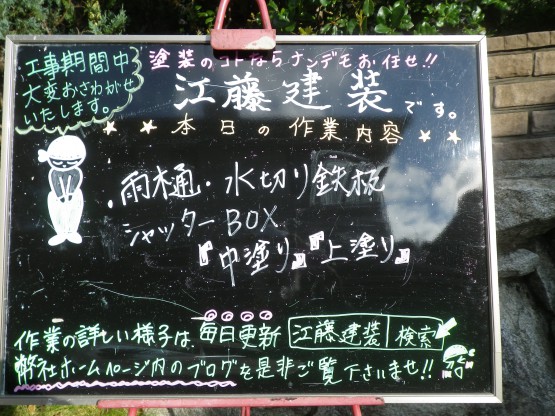 工事期間中
大変おさわがせ
いたします。
塗装のコトならナンデモお任せ!!
江藤建装です。
本日の作業内容
雨樋・水切り鉄板
シャッターBOX
『中塗り』『上塗り』
作業の詳しい様子は、毎日更新 江藤建装 検索
弊社ホームページ内のブログを是非ご覧下さいませ!!